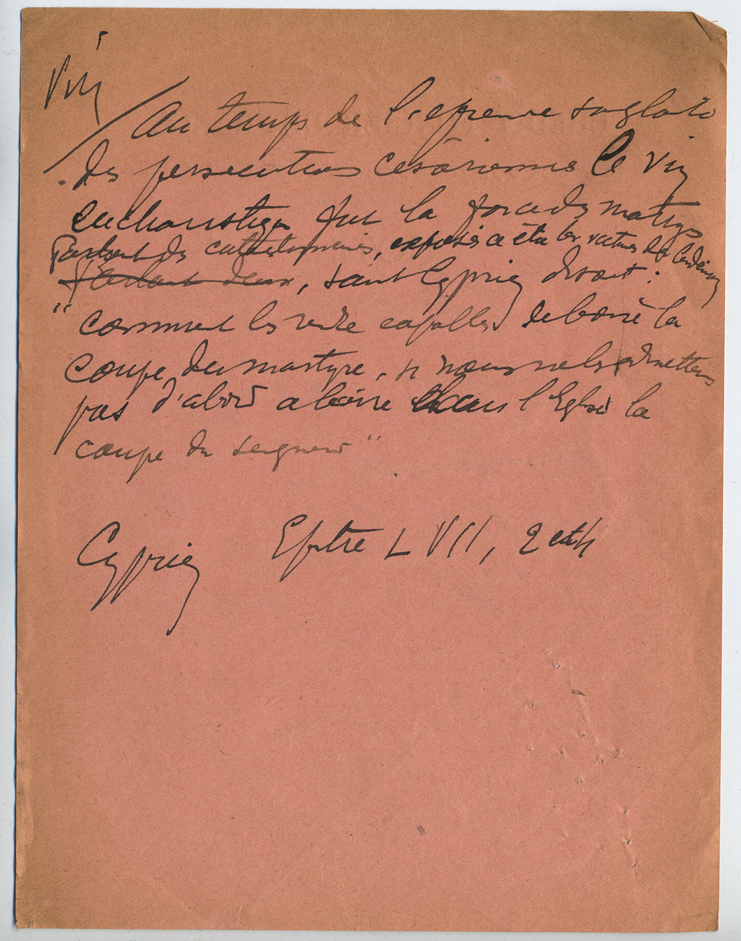 Vin
Au temps de l'épreuve sanglante
des persecutions césariennes le vin
eucharistique fut la force des martyrs
Parlant des catéchumènes, exposés a être les victimes de
parlant deux, saint Cyprien disait :
"comment les rendre capables de boire la
coupe du martyre, si nous ne les admettons
pas d'abord a boire dans l'Eglise la
coupe du Seigneur"
Cyprien Epitre LVII, 2 et 4